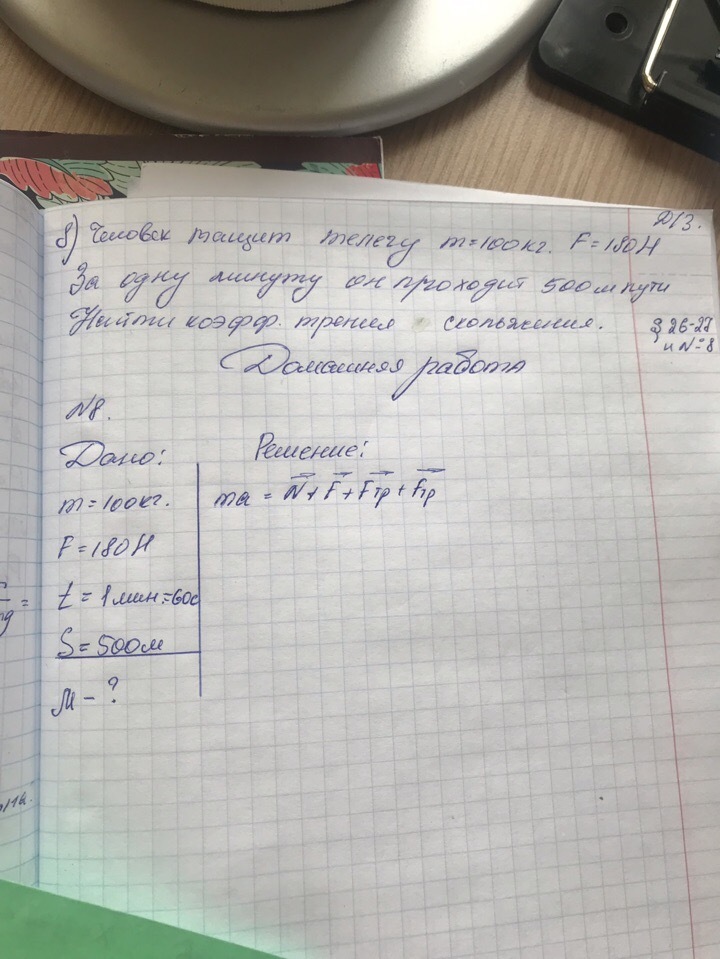 ДЗ.
8) Человек тащит телегу m=100кг. F=180Н
За одну минуту он проходит 500м пути
Найти коэфф. трения скольжения.
§ 26-27
и №8
Домашняя работа
№8.
Дано:
m=100кг.
F=180Н
t = 1мин.=60с
S=500м
μ - ?
Решение:
ma = N + F + Fтр + Fтр